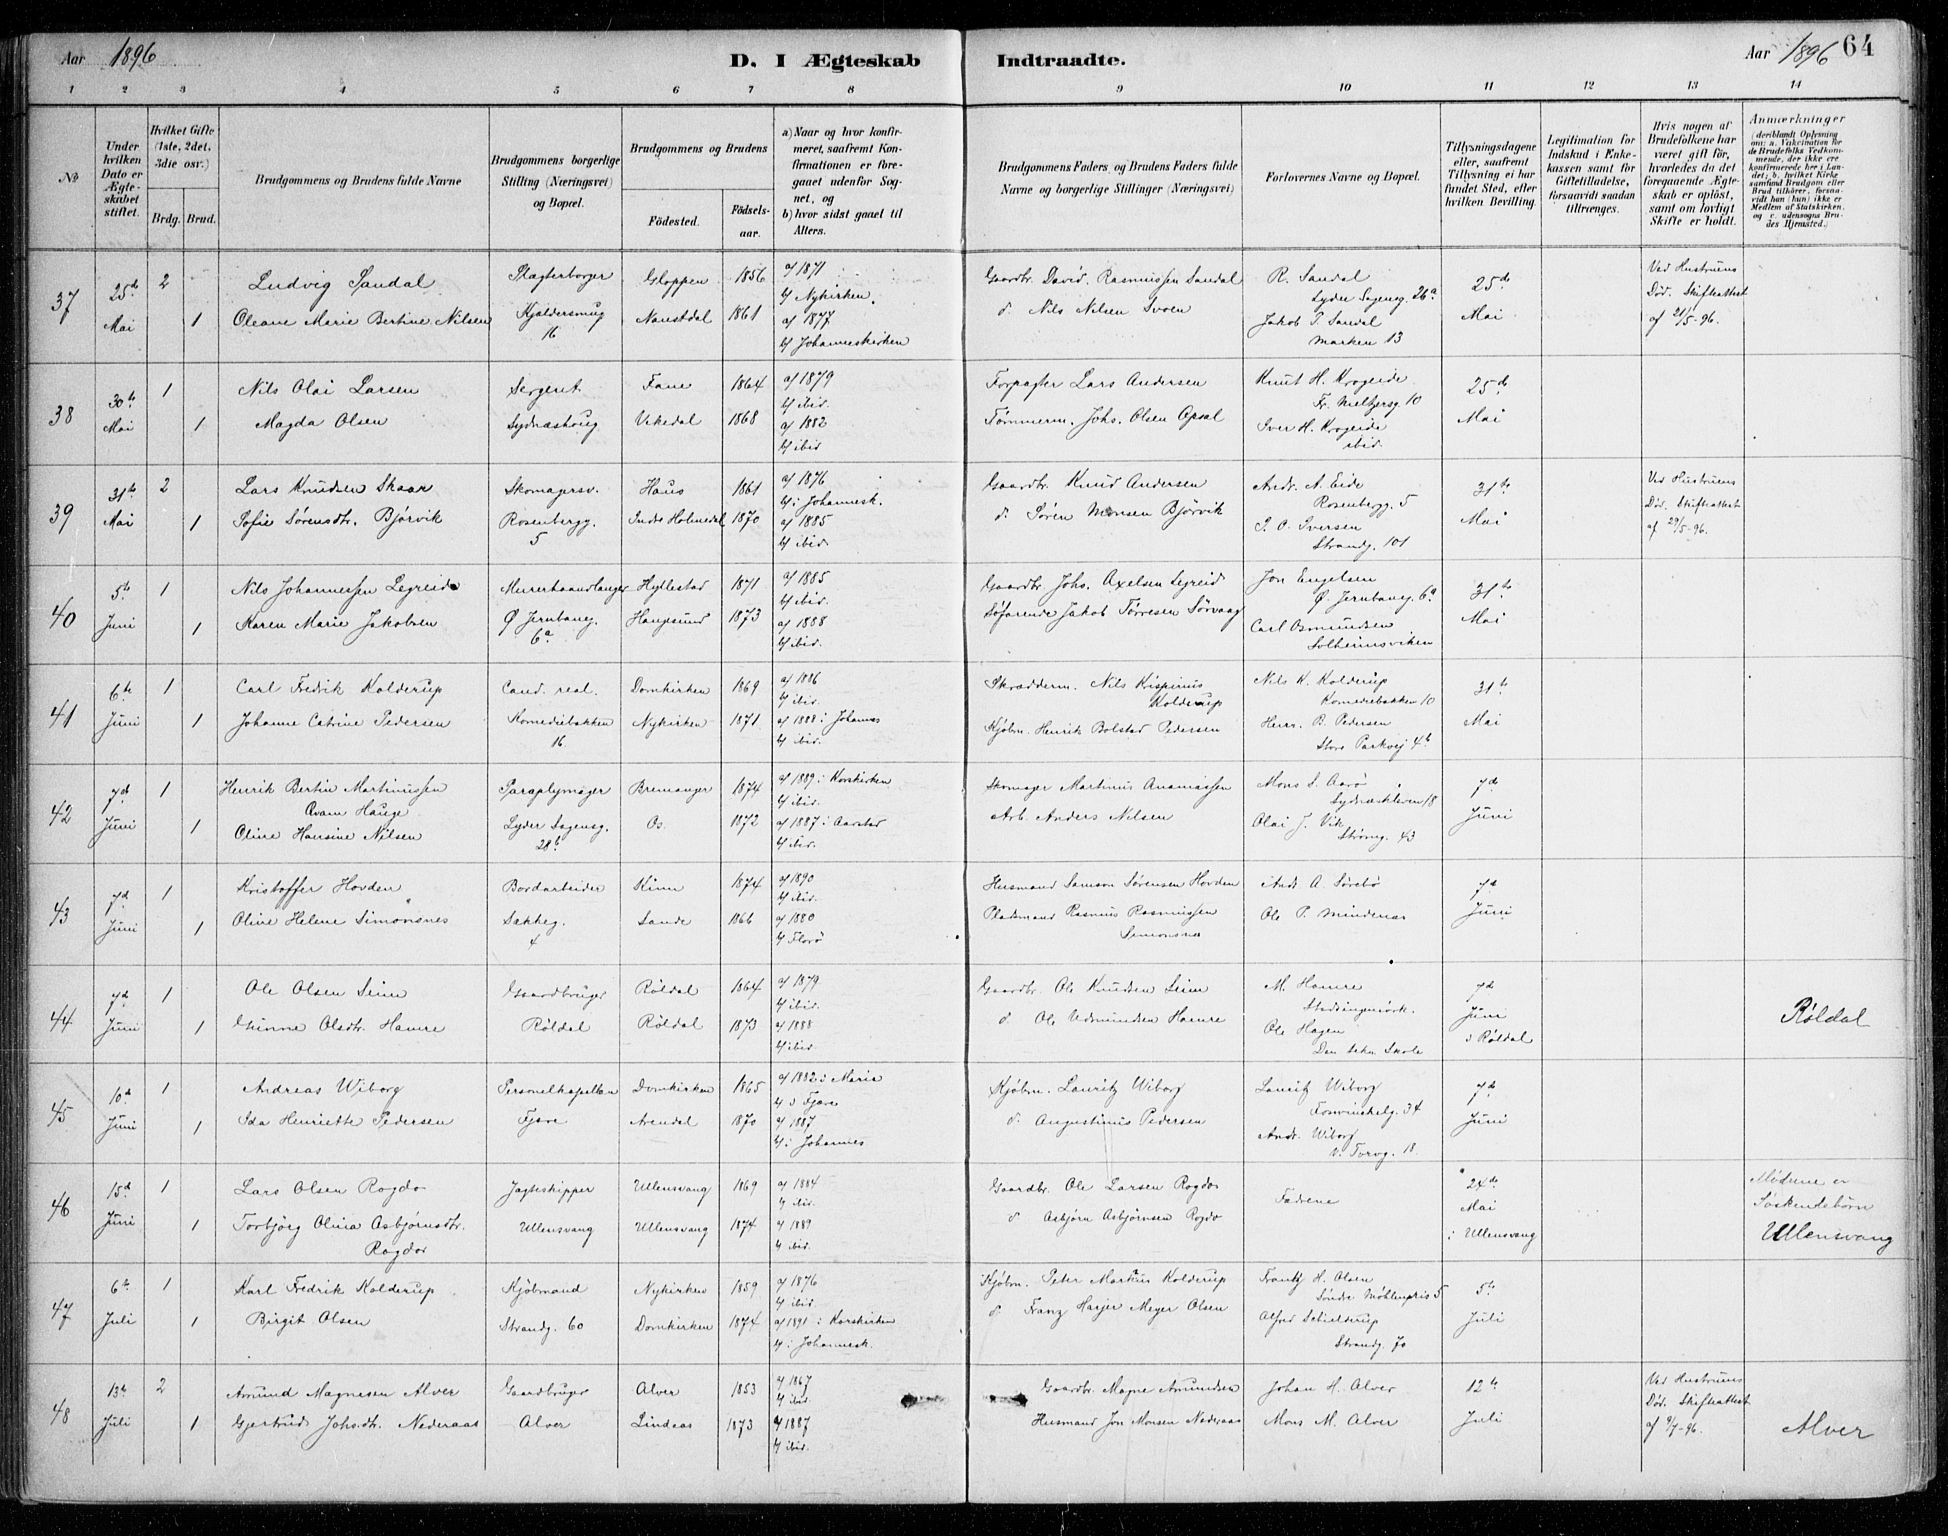 Aar 1896 D. I Ægteskab Indtraadte. Aar 1896 64
1 2 3 4 5 6 7 8 9 10 11 12 13 14
No
Under hvilken Dato er Ægteskabet stiftet.
Hvilket Gifte (1ste, 2det, 3die osv.)
Brdg. Brud.
Brudgommens og Brudens fulde Navne
Brudgommens borgerlige Stilling (Næringsvei) og Bopæl.
Brudgommens og Brudens
Födested. Födselsaar.
a) Naar og hvor konfirmeret, saafremt Konfirmationen er foregaaet udenfor Sognet, og
b) hvor sidst gaaet til Alters.
Brudgommens Faders og Brudens Faders fulde Navne og borgerlige Stillinger (Næringsvei)
Forlovernes Navne og Bopæl.
Tillysningsdagene eller, saafremt Tillysning ei har fundet Sted, efter hvilken Bevilling.
Legitimation for Indskud i Enkekassen samt for Giftetilladelse, forsaavidt saadan tiltrænges.
Hvis nogen af Brudefolkene har været gift för, hvorledes da det foregaaende Ægteskab er oplöst, samt om lovligt Skifte er holdt.
Anmærkninger
(deriblandt Oplysning om: a. Vakcination for de Brudefolks Vedkommende, der ikke ere konfirmerede her i Landet; b. hvilket Kirkesamfund Brudgom eller Brud tilhörer, forsaavidt han (hun) ikke er Medlem af Statskirken, og c. udensogns Brudes Hjemsted.)
37 25de Mai 2 Ludvig Sandal Slagterborger Gloppen 1856 a/ 1871 b/ Nykirken. Gaardbr. David Rasmussen Sandal R. Sandal Lyder Sagensg. 26a 25de Mai Ved Hustruens Död. Skifteattest af 21/5-96.
1 Oleane Marie Bertine Nilsen Kjeldersmug 16 Naustdal 1861 a/ 1877 b/ Johanneskirken d. Nils Nilsen Svoen Jakob T. Sandal Marken 13
38 30te Mai 1 Nils Olai Larsen Sergent Fane 1864 a/ 1879 b/ ibid. Forpagter Lars Andersen Knut H. Krogeide Fr. Meltzersg. 10 25de Mai
1 Magda Olsen Sydnæshoug Vikedal 1868 a/ 1882 b/ ibid Tømmerm. Johs. Olsen Opsal Iver H. Krogeide ibid.
39 31te Mai 2 Lars Knudsen Skaar Skomagersv. Haus 1861 a/ 1876 b/ i Johannesk. Gaardbr. Knud Andersen Andr. A. Eide Rosenbergg. 5 31te Mai Ved Hustruens Död. Skifteattest af 29/5-96.
1 Sofie Sørensdtr. Bjørvik Rosenbergg. 5 Indre Holmedal 1870 a/ 1885 b/ ibid. d. Søren Monsen Bjørvik S. O. Iversen Strandg. 101
40 5te Juni 1 Nils Johannessen Legreid Murerhaandlanger Hyllestad 1871 a/ 1885 b/ ibid. Gaardbr. Johs. Axelsen Legreid Jon Engelsen Ø. Jernbaneg. 6a 31te Mai
1 Karen Marie Jakobsen Ø Jernbaneg. 6a Haugesund 1873 a/ 1888 b/ ibid. Søfarende Jakob Tørresen Sørvaag Carl Osmundsen Solheimsviken
41 6te Juni 1 Carl Fredrik Kolderup Cand. real. Domkirken 1869 a/ 1886 b/ ibid. Skrædderm. Nils Krispinus Kolderup Nils K. Kolderup Komediebakken 10 31te Mai
1 Johanne Catrine Pedersen Komediebakken 16 Nykirken 1871 a/ 1888 i Johannes b/ ibid. Kjøbm. Henrik Bolstad Pedersen Henr. B. Pedersen Store Parkvej 4b
42 7de Juni 1 Henrik Bertin Martinussen Qvam Hauge Paraplymager Bremanger 1874 a/ 1889 i Korskirken b/ ibid. Skomager Martinus Ananiassen Mons S. Aarø Sydnæskleven 18 7de Juni
1 Oline Hansine Nilsen Lyder Sagensg. 28b Os 1872 a/ 1887 i Aarstad b/ ibid. Arb. Anders Nilsen Olai J. Vik Strømg. 43
43 7de Juni 1 Kristoffer Hovden Bordarbeider Kinn 1874 a/ 1890 b/ ibid. Husmand Samson Sørensen Hovden Andr. A. Sørebø 7de Juni
1 Oline Helene Simonsnes Sækkeg. 4 Sande 1866 a/ 1880 b/ Florø Pladsmand Rasmus Rasmussen Simonsnes Ole P. Mindenes
44 7de Juni 1 Ole Olsen Seim Gaardbruger Röldal 1864 a/ 1879 b/ ibid. Gaardbr. Ole Knudsen Seim M. Hamre Stadsingeniörk. 7de Juni i Röldal Röldal
1 Gunne Olsdtr. Hamre Röldal Röldal 1873 a/ 1888 b/ ibid. d. Ole Udmundsen Hamre Ole Hagen Den tekn Skole
45 10de Juni 1 Andreas Wiborg Personelkapellan Domkirken 1865 a/ 1882 i Marie b/ i Fjære Kjøbm. Lauritz Wiborg Lauritz Wiborg Fosvinckelg. 34 7de Juni
1 Ida Henriette Pedersen Fjære Arendal 1870 a/ 1887 b/ i Johannes d. Augustinus Pedersen Andr. Wiborg V. Torvg. 18
46 15de Juni 1 Lars Olsen Rogdo Jagteskipper Ullensvang 1869 a/ 1884 b/ ibid. Gaardbr. Ole Larsen Rogdo Fædrene 24de Mai i Ullensvang Mødrene er Søskendebörn Ullensvang
1 Torbjørg Olina Asbjørnsdtr. Rogdo Ullensvang Ullensvang 1874 a/ 1889 b/ ibid. d. Asbjørn Asbjørnsen Rogdo
47 6te Juli 1 Karl Fredrik Kolderup Kjøbmand Nykirken 1859 a/ 1876 b/ ibid. Kjøbm. Peter Markus Kolderup Frantz H. Olsen Söndre Möhlenpris 5 5te Juli
1 Birgit Olsen Strandg. 60 Domkirken 1874 a/ 1891 i Korskirken b/ i Johannesk. d. Franz Harjer Meyer Olsen Alfred Schieldrup Strandg 70
48 13de Juli 2 Amund Magnesen Alver Gaardbruger Alver 1853 a/ 1867 b/ ibid Gaardbr. Magne Amundsen Johan H. Alver 12te Juli Ved Hustruens Död. Skifteattest af 9/7-96. Alver
1 Gjertrud Johs.dtr. Nederaas Alver Lindaas 1873 a/ 1887 b/ ibid. Husmand Jon Monsen Nederaas Mons M. Alver